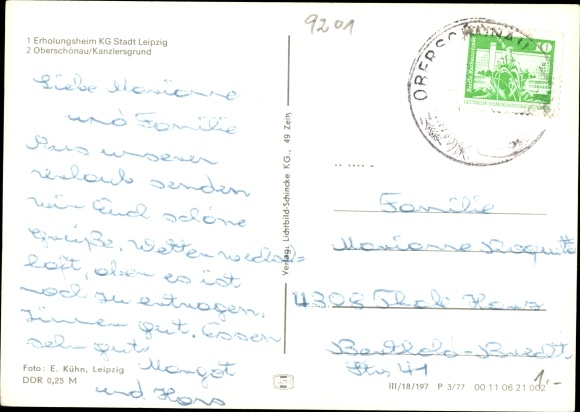 9201
1 Erholungsheim KG Stadt Leipzig
2 Oberschönau/Kanzlersgrund
Liebe Marianne
und Familie
Aus unserem
Urlaub senden
wir Euch schöne
Grüße. Wetter wechsel=
haft, aber es ist
noch zu ertragen.
Zimmer gut. Essen
sehr gut.
Margot
und Hans
Foto: E. Kühn, Leipzig
DDR 0,25 M
Verlag: Lichtbild-Schincke KG., 49 Zeitz
OBERSCHÖNAU
10
Familie
Marianne
4308 Thale Harz
Berthold-Brecht
Str 41
III/18/197 P 3/77 00 11 06 21 002
1.-